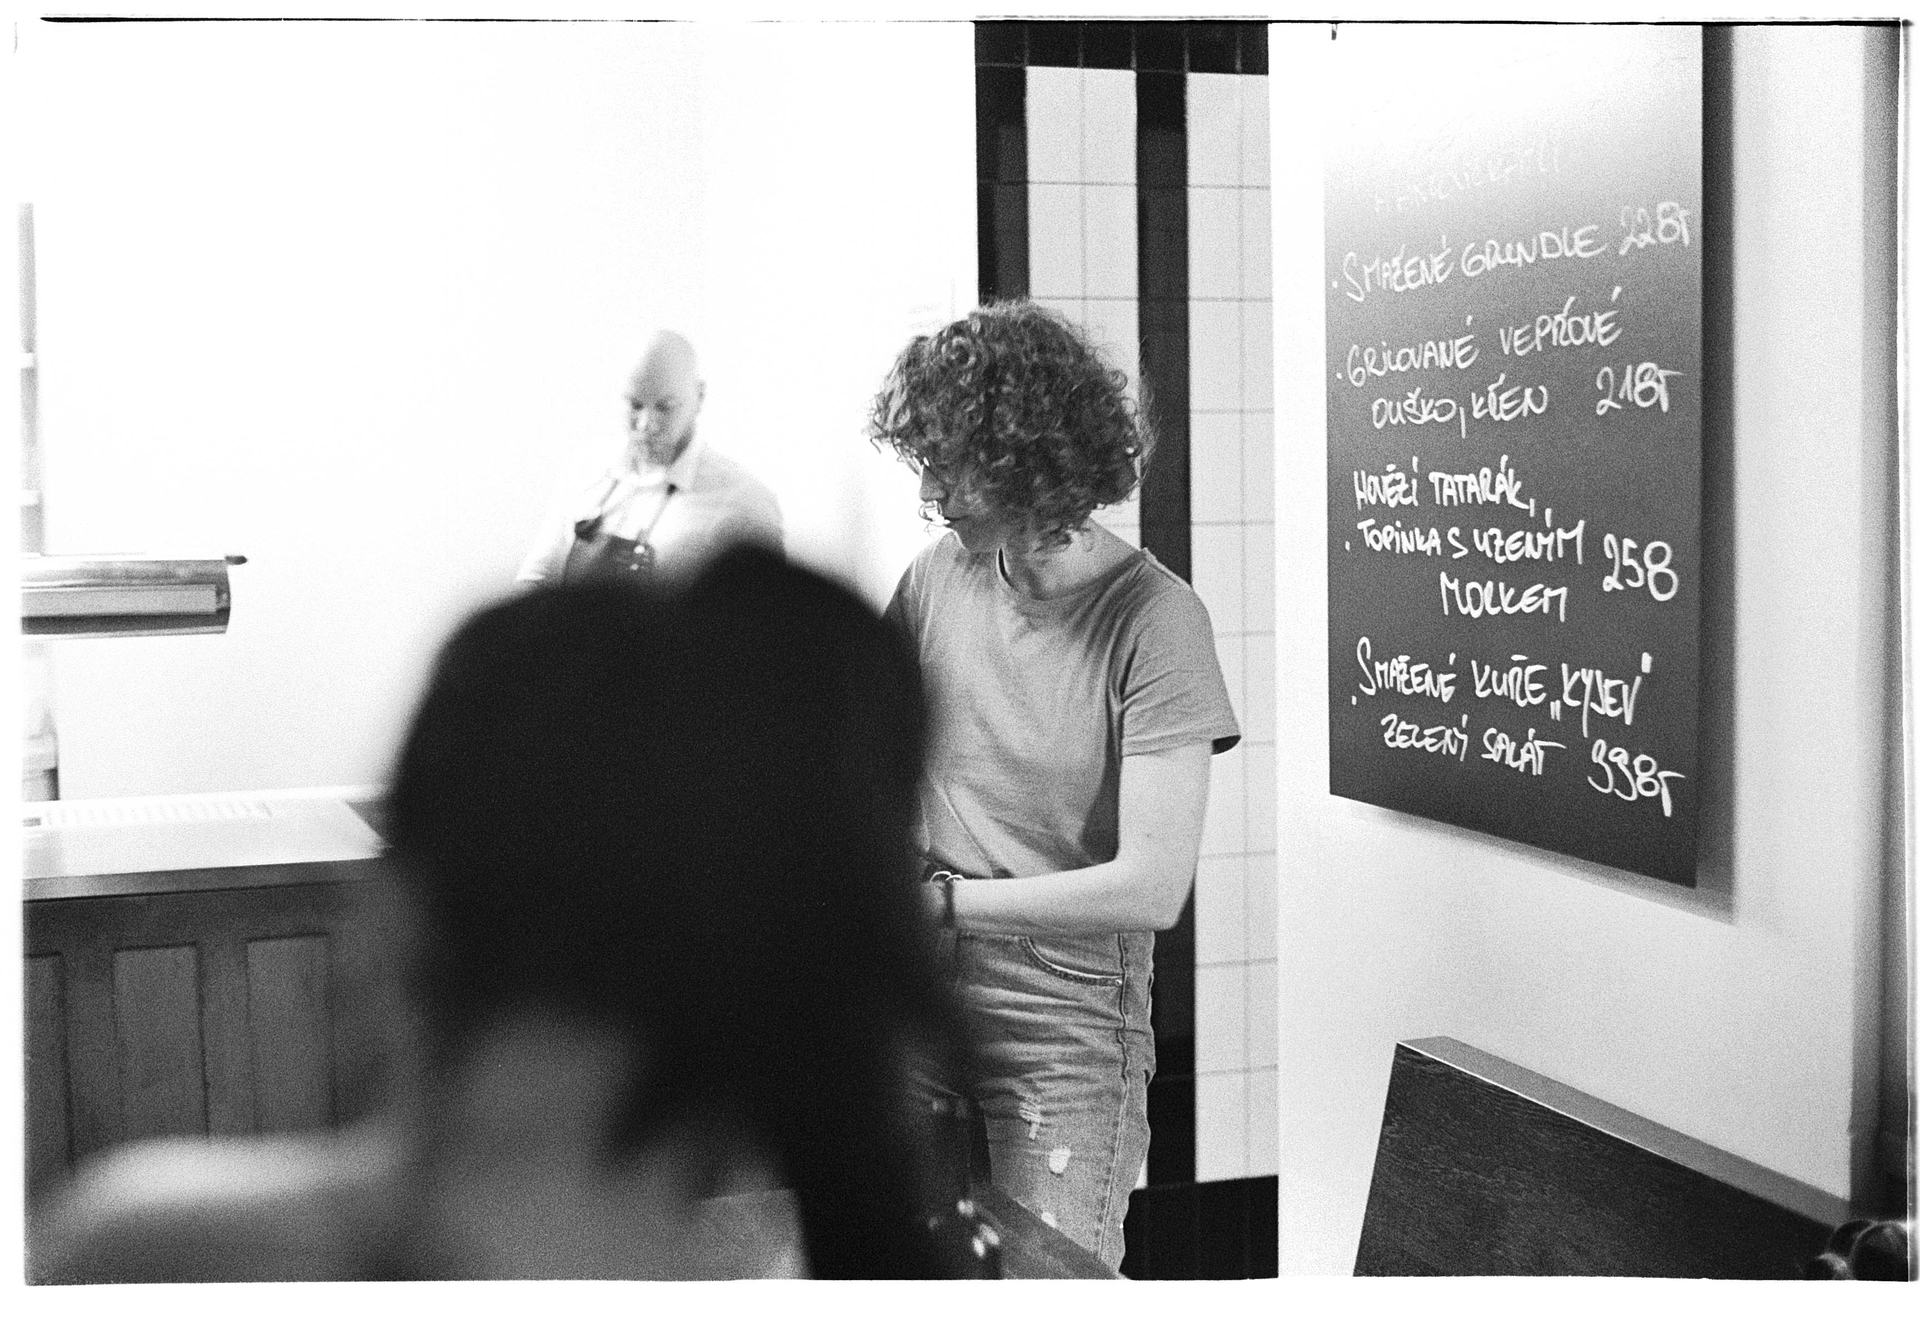 · SMAŽENÉ GRENDLE 228,-
· GRILOVANÉ VEPŘOVÉ
OUŠKO, KŘEN 218,-
HOVĚZÍ TATARÁK,
· TOPINKA S UZENÝM 258
MORKEM
· SMAŽENÉ KUŘE „KYJEV"
ZELENÝ SALÁT 398,-